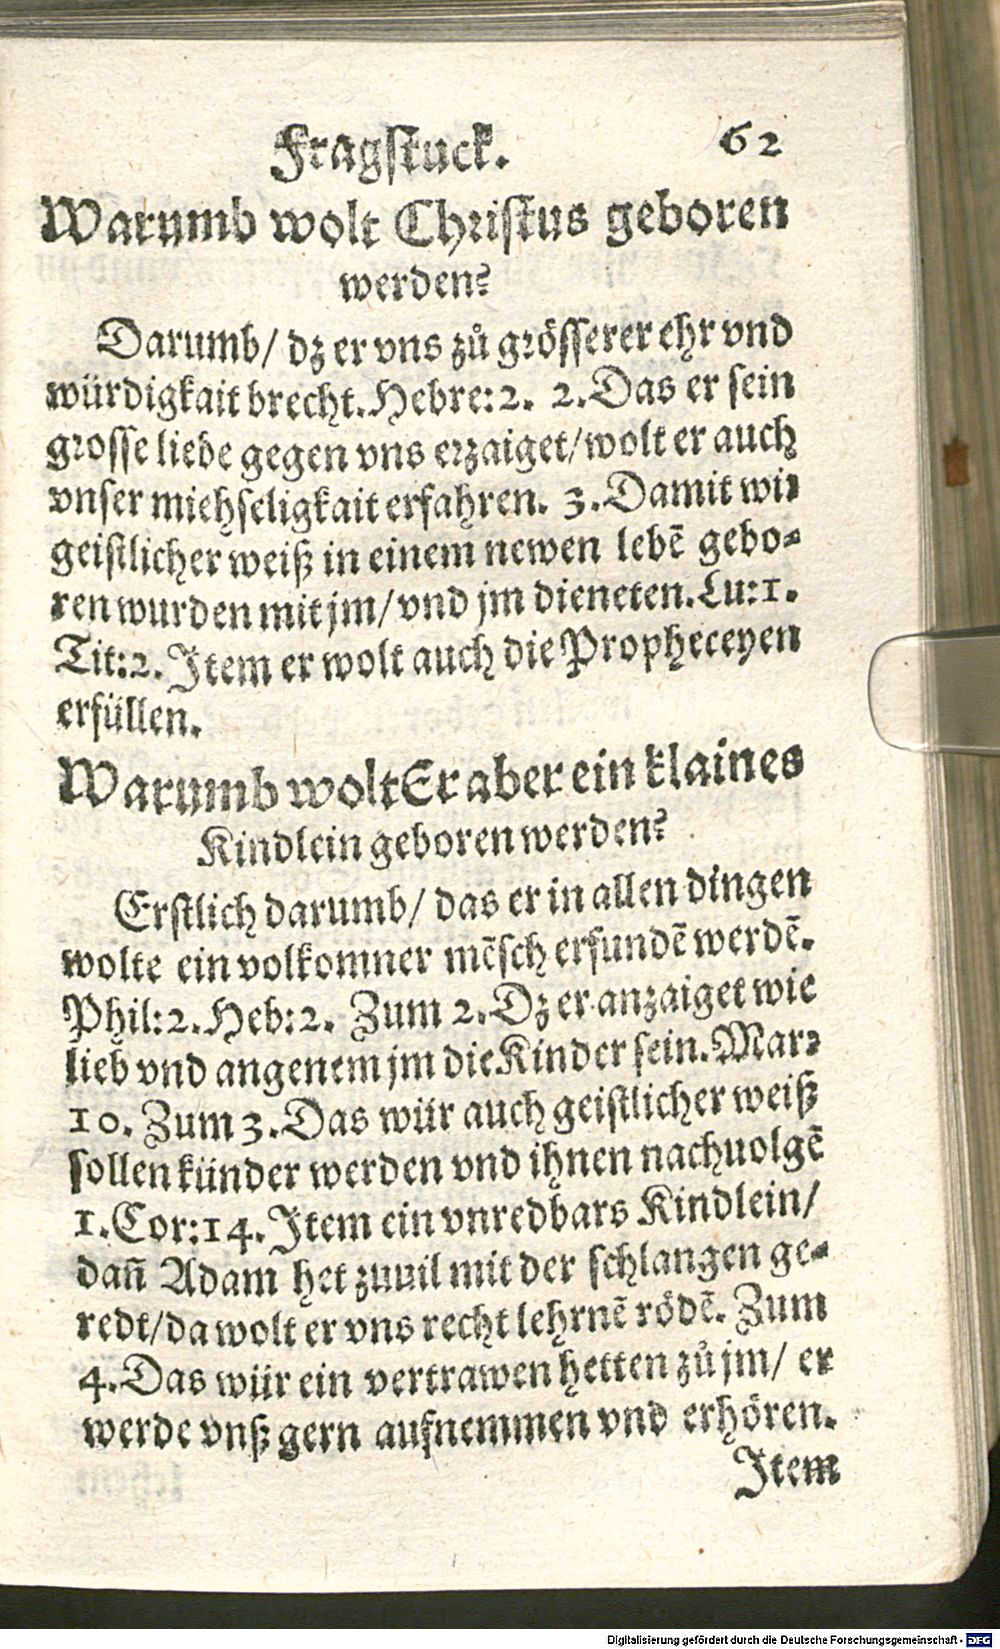 Fragstuck. 62
Warumb wolt Christus geboren
werden?
Darumb/ dz er vns zů grösserer ehr vnd
würdigkait brecht. Hebre: 2. 2. Das er sein
grosse liebe gegen vns erzaiget/ wolt er auch
vnser miehseligkait erfahren. 3. Damit wir
geistlicher weiß in einem newen lebē gebo-
ren wurden mit jm/ vnd jm dieneten. Lu: 1.
Tit: 2. Item er wolt auch die Propheceyen
erfüllen.
Warumb wolt Er aber ein klaines
Kindlein geboren werden?
Erstlich darumb/ das er in allen dingen
wolte ein volkomner mēsch erfundē werdē.
Phil: 2. Heb: 2. Zum 2. Dz er anzaiget wie
lieb vnd angenem jm die Kinder sein. Mar:
10. Zum 3. Das wür auch geistlicher weiß
sollen künder werden vnd ihnen nachuolgē
1. Cor: 14. Item ein vnredbars Kindlein/
dañ Adam het zuuil mit der schlangen ge-
redt/ da wolt er vns recht lehrnē rödē. Zum
4. Das wür ein vertrawen hetten zů jm/ er
werde vnß gern aufnemmen vnd erhören.
Item
Digitalisierung gefördert durch die Deutsche Forschungsgemeinschaft - DFG